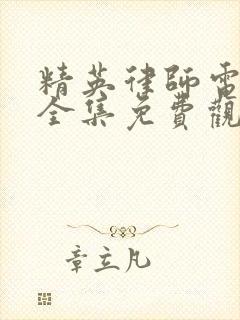 精英律師電
全集免費觀
章立凡